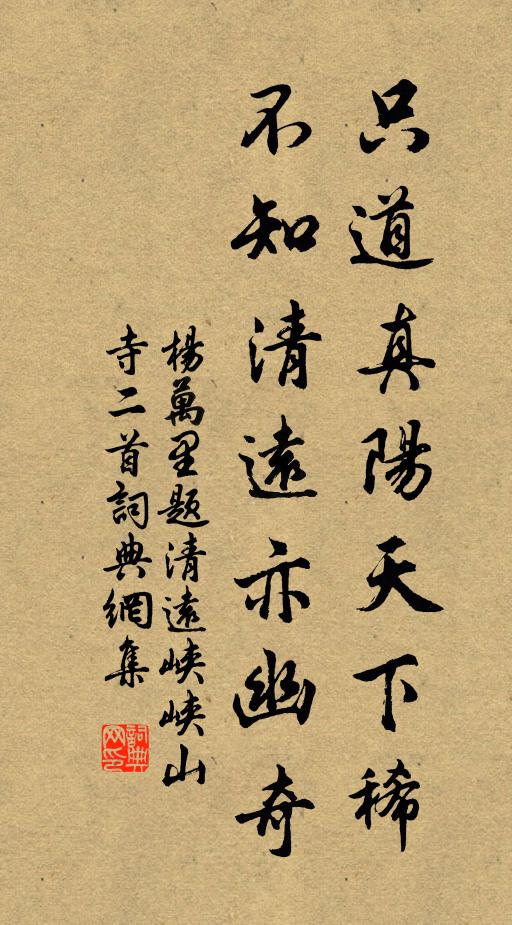 只道真陽天下稀
不知清遠亦幽奇
楊萬里题清遠峡峡山
寺二首詞典網集
詞典
网印